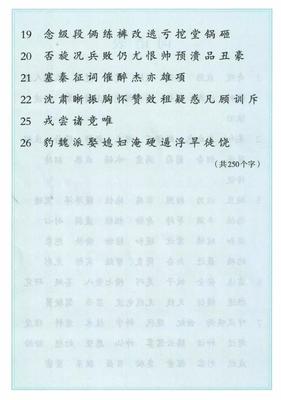 19 念级段俩练裤改逃亏挖堂锅砸
20 否旋况兵败仍尤恨帅预溃品丑豪
21 塞秦征词催醉杰亦雄项
22 沈肃晰振胸怀赞效租疑惑凡顾训斥
25 戎尝诸竞唯
26 豹魏派娶媳妇淹硬逼浮旱徒饶
（共250个字）